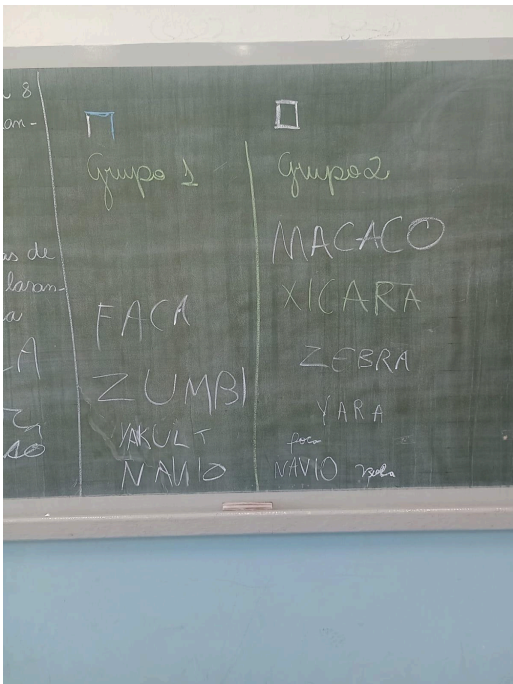 8
an-
as de
laran-
a
A
Grupo 1
FACA
ZUMBI
YAKULT
NAVIO
Grupo 2
MACACO
XICARA
ZEBRA
YARA
foca
NAVIO